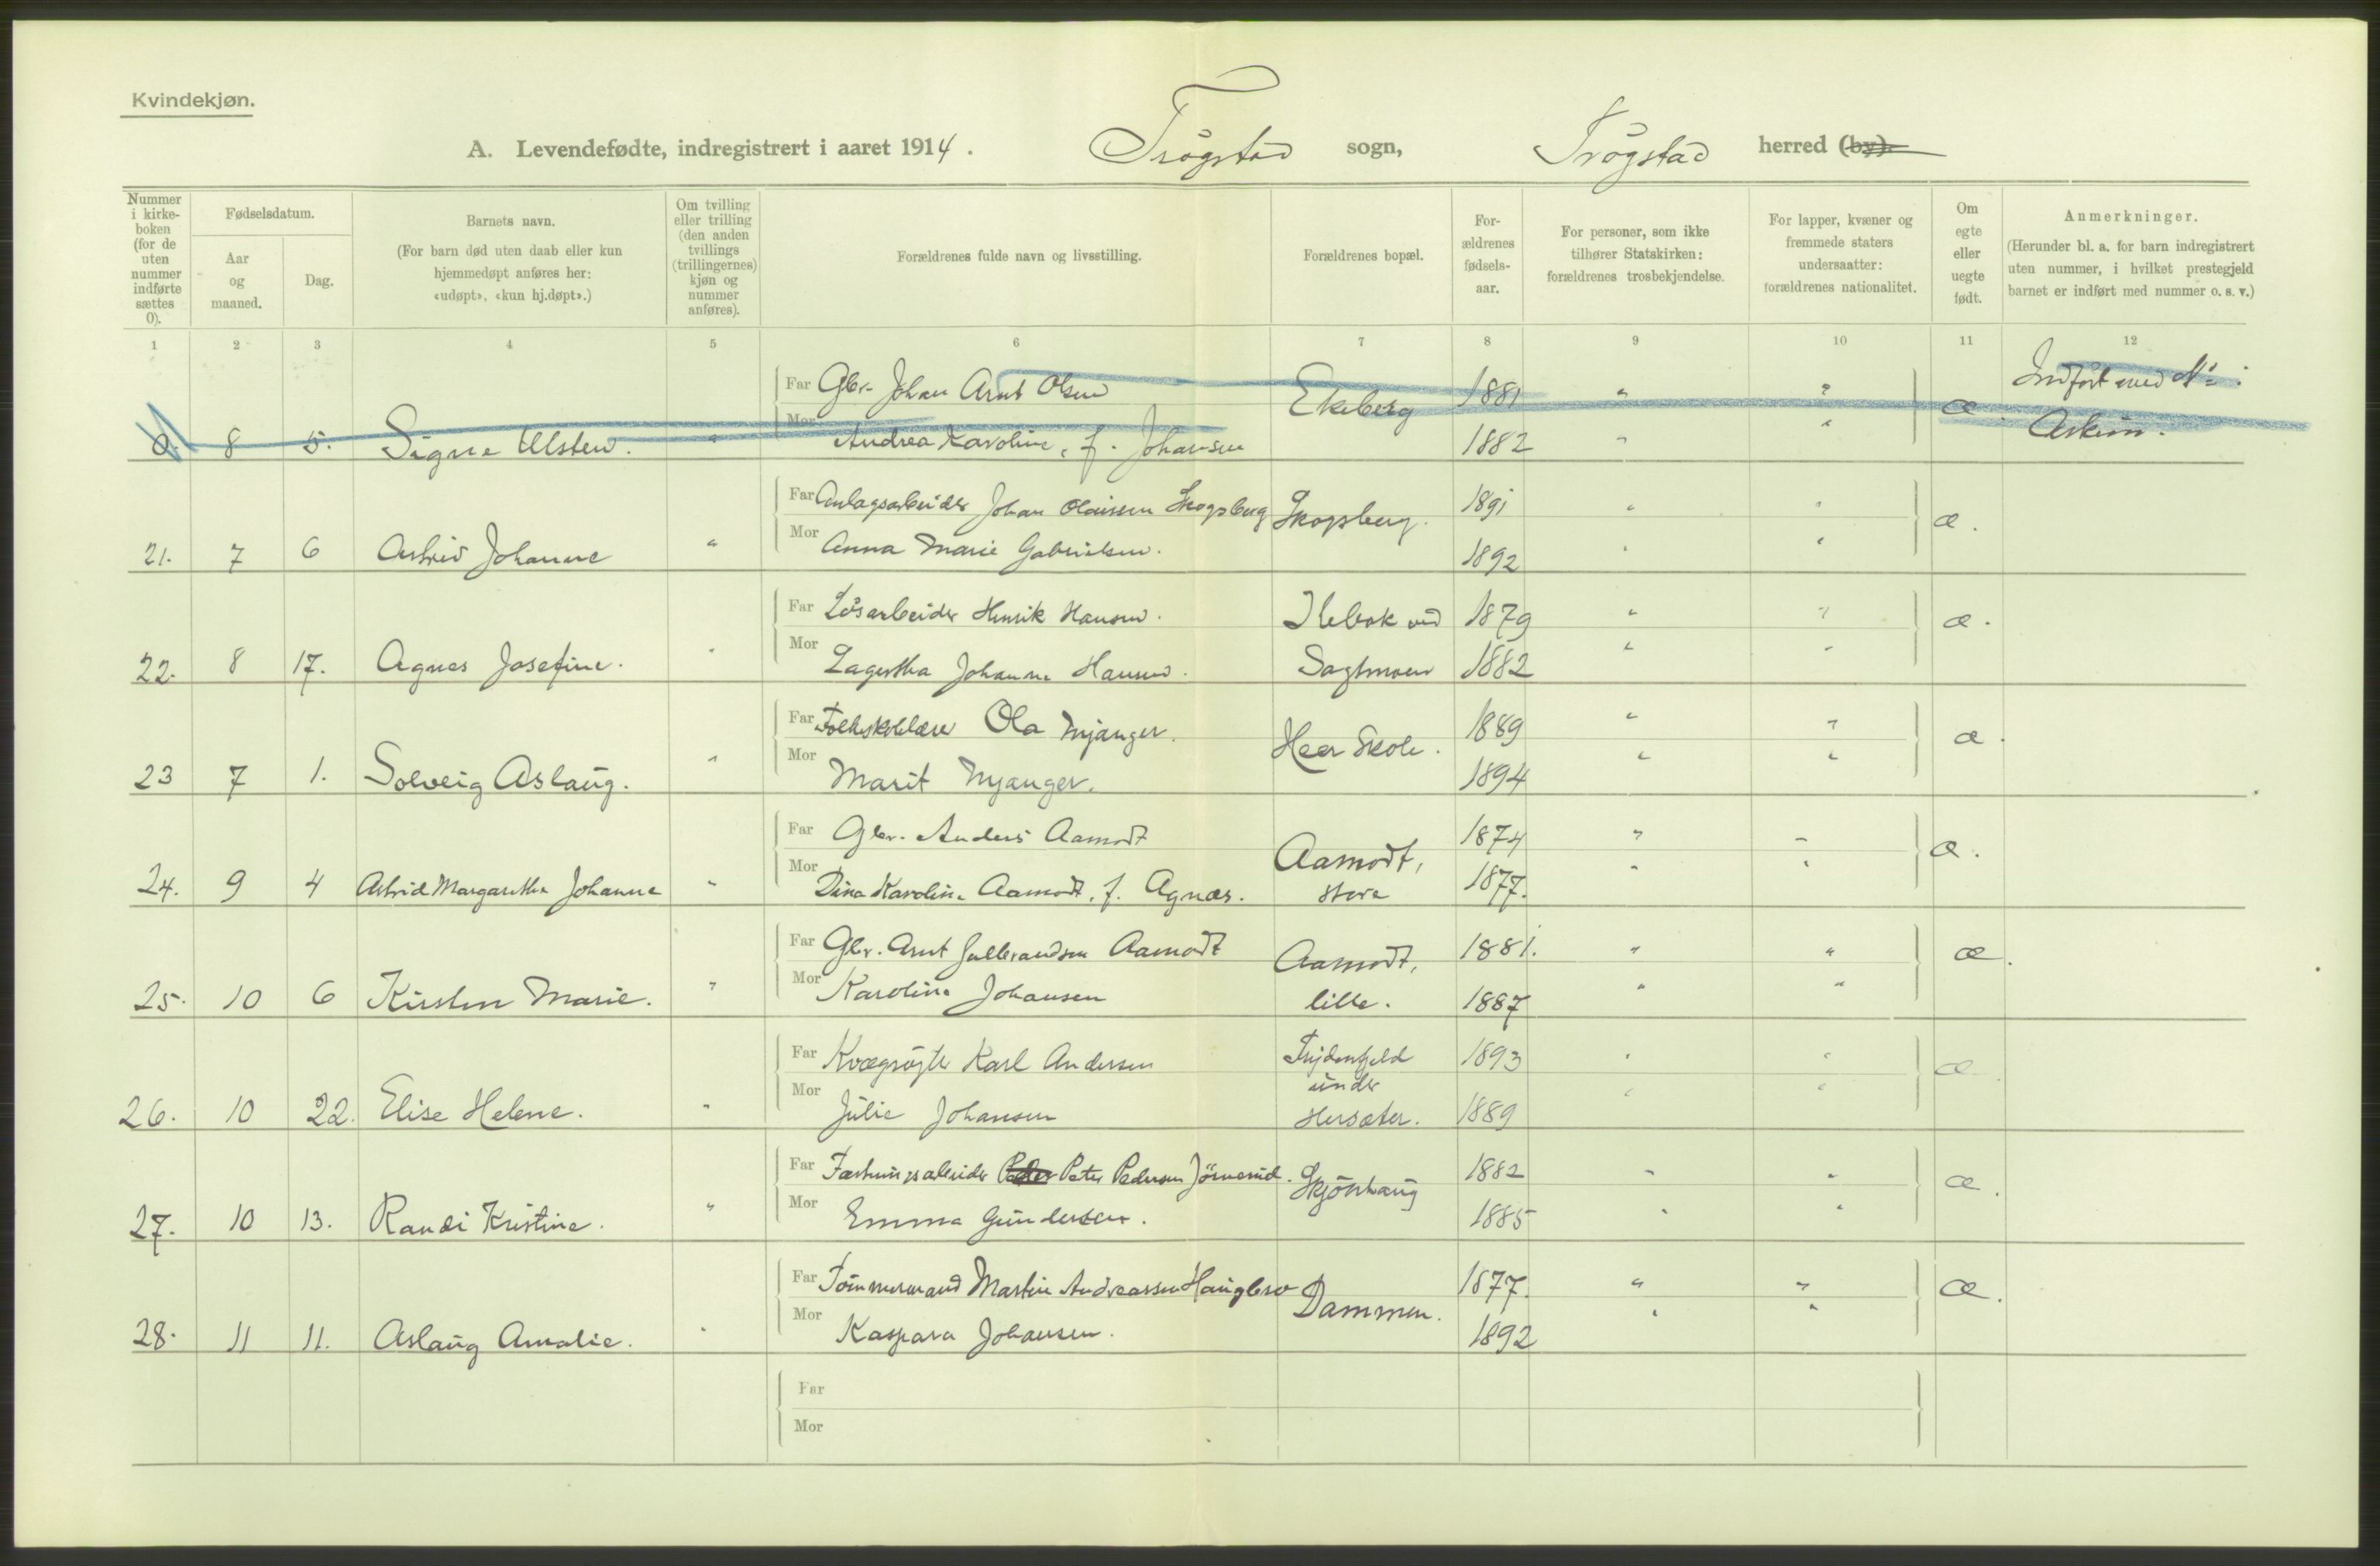 Kvindekjøn.
A. Levendefødte, indregistrert i aaret 1914. Trøgstad sogn, Trøgstad herred (by).
Nummer i kirkeboken (for de uten nummer indførte sættes 0).
Fødselsdatum.
Aar og maaned.
Dag.
Barnets navn.
(For barn død uten daab eller kun hjemmedøpt anføres her: «udøpt», «kun hj.døpt».)
Om tvilling eller trilling (den anden tvillings (trillingernes) kjøn og nummer anføres).
Forældrenes fulde navn og livsstilling.
Forældrenes bopæl.
For-ældrenes fødsels-aar.
For personer, som ikke tilhører Statskirken: forældrenes trosbekjendelse.
For lapper, kvæner og fremmede staters undersaatter: forældrenes nationalitet.
Om egte eller uegte født.
Anmerkninger.
(Herunder bl. a. for barn indregistrert uten nummer, i hvilket prestegjeld barnet er indført med nummer o. s. v.)
1 2 3 4 5 6 7 8 9 10 11 12
Far Gbr. Johan Arnt Olsen Ekeberg 1881 " " æ Indført med No i
0. 8 5. Signe Ulsten. " Mor Andrea Karoline, f. Johansen 1882 " " Askim.
Far Anlagsarbeider Johan Olaissen Skogsberg Skogsberg. 1891 " " æ.
21. 7 6 Astrid Johanne " Mor Anna Marie Gabrielsen. 1892 " "
Far Løsarbeider Henrik Hansen. Ilebæk ved 1879 " " æ.
22. 8 17. Agnes Josefine. " Mor Lagertha Johanne Hansen. Sagtmoen 1882 " "
Far Folkeskolelærer Ola Mjanger. Heer Skole. 1889 " " æ.
23 7 1. Solveig Aslaug. " Mor Marit Mjanger. 1894 " "
Far Gbr. Anders Aamodt Aamodt, 1874 " " æ.
24. 9 4 Astrid Margaretha Johanne " Mor Dina Karoline Aamodt, f. Agnæs. store 1877. " "
Far Gbr. Arnt Gulbrandsen Aamodt Aamodt, 1881. " " æ.
25. 10 6 Kirsten Marie. " Mor Karoline Johansen lille. 1887 " "
Far Kvægrøgter Karl Andersen under 1893 " " æ
26. 10 22. Elise Helene. " Mor Julie Johansen Hersæter. 1889 " "
Far Fæstningsarbeider Peter Pedersen Jørnerud. Skjønhaug 1882 " " æ.
27. 10 13. Randi Kristine. " Mor Emma Gundersen. 1885 " "
Far Tømmermand Martin Andreassen Haugbro Dammen. 1877. " " æ.
28. 11 11. Aslaug Amalie. " Mor Kaspara Johansen. 1892 " "
Far
Mor